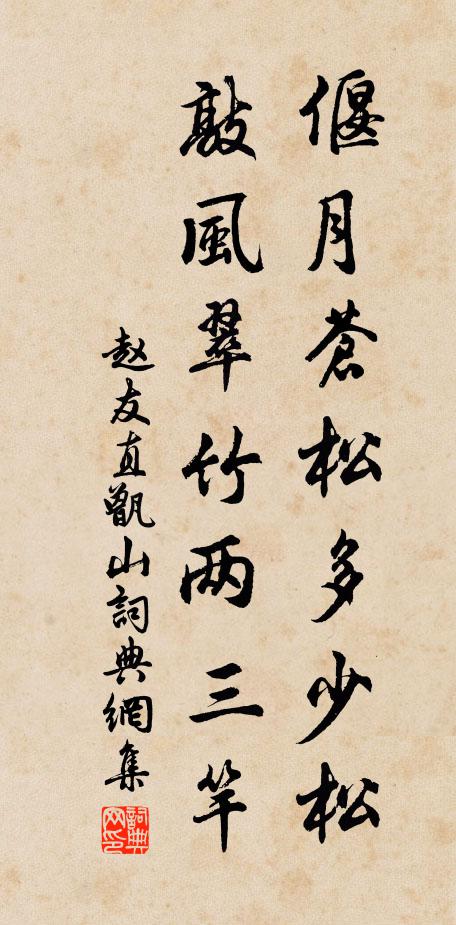 偃月蒼松多少松
敲風翠竹两三竿
赵友直甑山詞典網集
詞典网印